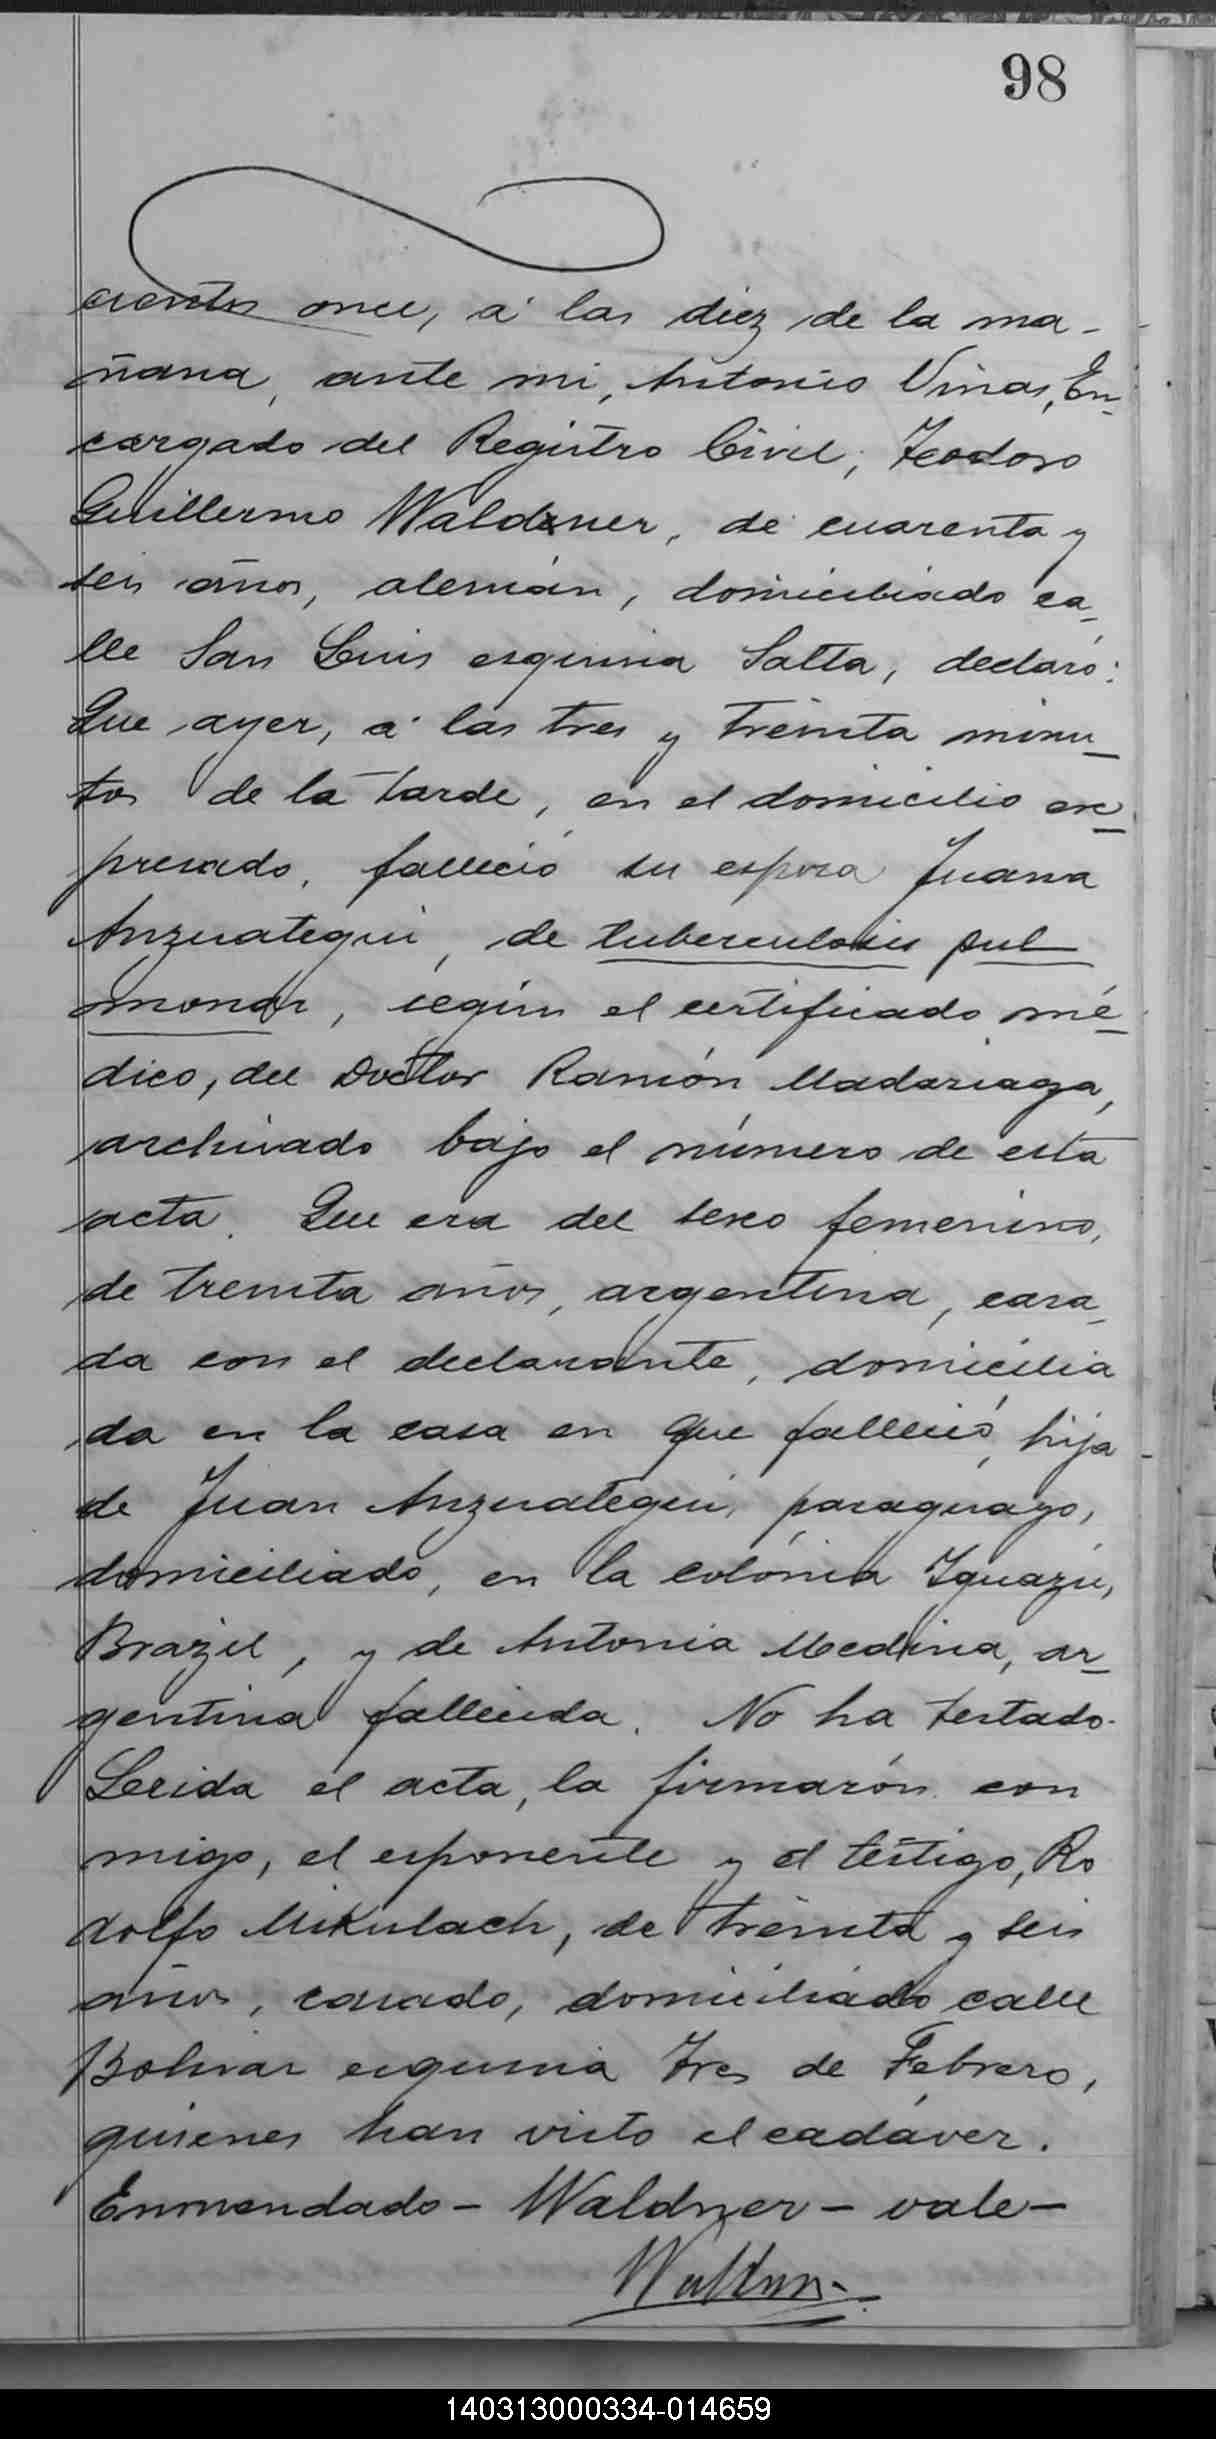 98
cientos once, á las diez de la ma-
ñana, ante mi, Antonio Viñas, En-
cargado del Registro Civil; Teodoro
Guillermo Waldner, de cuarenta y
seis años, alemán, domiciliado ca-
lle San Luis esquina Salta, declaró:
Que ayer, á las tres y treinta minu-
tos de la tarde, en el domicilio ex-
presado, falleció su esposa Juana
Anzuategui, de tuberculosis pul
monar, según el certificado mé-
dico, del Doctor Ramón Madariaga,
archivado bajo el número de esta
acta. Que era del sexo femenino,
de treinta años, argentina, casa-
da con el declarante, domicilia
da en la casa en que falleció, hija
de Juan Anzuategui, paraguayo,
domiciliado, en la colonia Iguazú,
Brazil, y de Antonia Medina, ar-
gentina fallecida. No ha testado.
Leeida el acta, la firmarón con
migo, el esponente y el testigo, Ro
dolfo Mikulach, de treinta y seis
años, casado, domiciliado calle
Bolivar esquina Tres de Febrero,
quienes han visto el cadáver.
Enmendado - Waldner - vale -
140313000334-014659